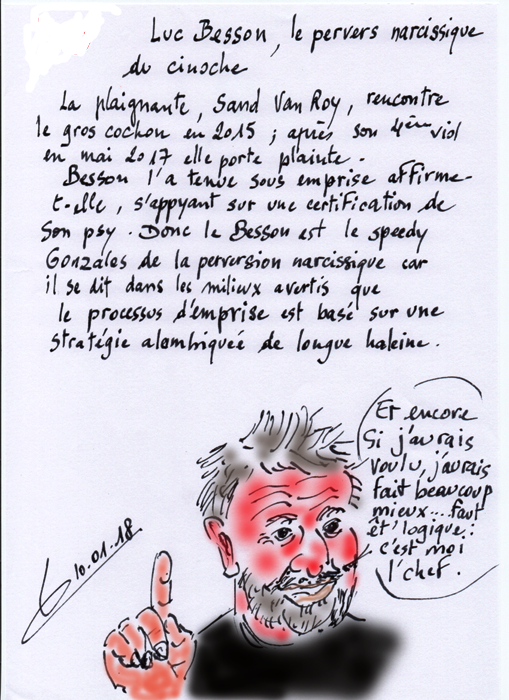 Luc Besson, le pervers narcissique
du cinoche
La plaignante, Sand Van Roy, rencontre
le gros cochon en 2015 ; après son 4ème viol
en mai 2017 elle porte plainte.
Besson l'a tenue sous emprise affirme-
t-elle, s'appyant sur une certification de
son psy. Donc le Besson est le speedy
Gonzáles de la perversion narcissique car
il se dit dans les milieux avertis que
le processus d'emprise est basé sur une
stratégie alambiquée de longue haleine.
Et encore
Si j'aurais
voulu, j'aurais
fait beaucoup
mieux... faut
êt' logique :
c'est moi
l'chef.
10.01.18